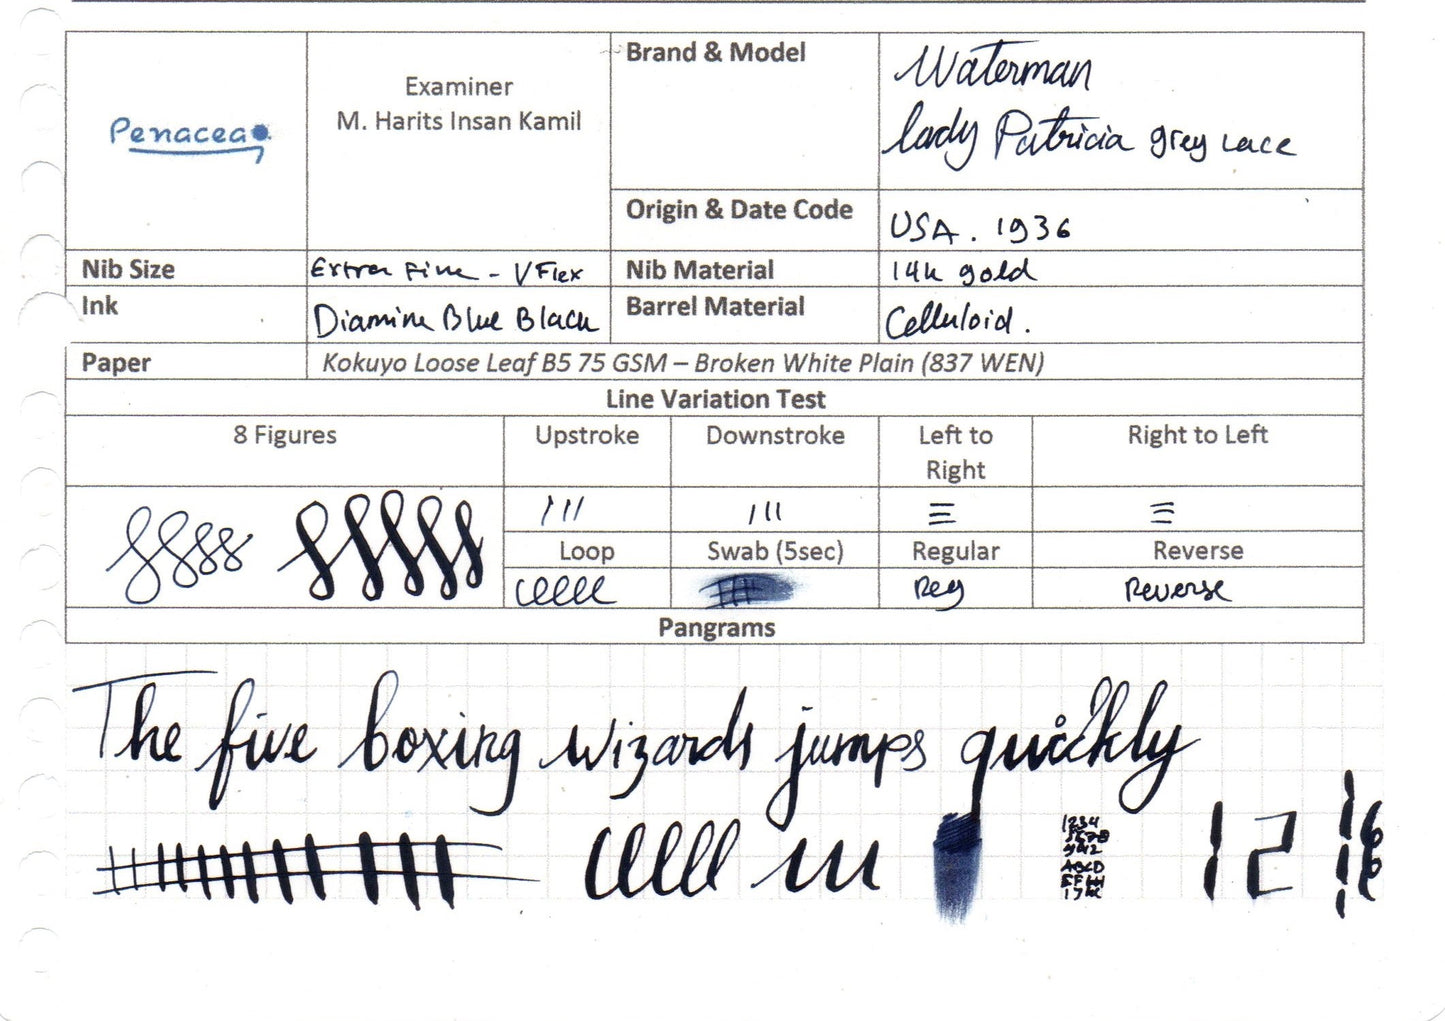 Penacea
Examiner
M. Harits Insan Kamil
Brand & Model
Waterman
Lady Patricia grey Lace
Origin & Date Code
USA. 1936
Nib Size
Extra Fine - V Flex
Nib Material
14k gold
Ink
Diamine Blue Black
Barrel Material
Celluloid.
Paper
Kokuyo Loose Leaf B5 75 GSM – Broken White Plain (837 WEN)
Line Variation Test
8 Figures
Upstroke
Downstroke
Left to
Right
Right to Left
Loop
Swab (5sec)
Regular
Reverse
Reg
Reverse
Pangrams
The five boxing wizards jumps quickly
1234
5678
ABCD
1 2